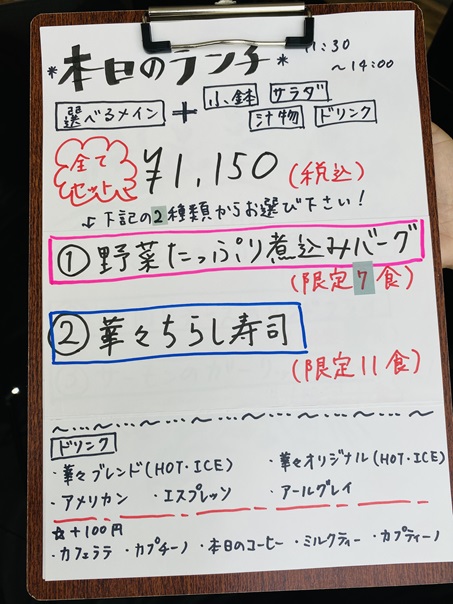 *本日のランチ* 11:30
～14:00
選べるメイン + 小鉢 サラダ
汁物 ドリンク
全て
セット ¥1,150 (税込)
↓下記の2種類からお選び下さい!
① 野菜たっぷり煮込みバーグ
(限定7食)
② 華々ちらし寿司
(限定11食)
～…～…～…～…～…～…～…～…～
ドリンク
・華々ブレンド(HOT・ICE) ・華々オリジナル(HOT・ICE)
・アメリカン ・エスプレッソ ・アールグレイ
☆+100円
・カフェラテ ・カプチーノ ・本日のコーヒー ・ミルクティー ・カプティーノ